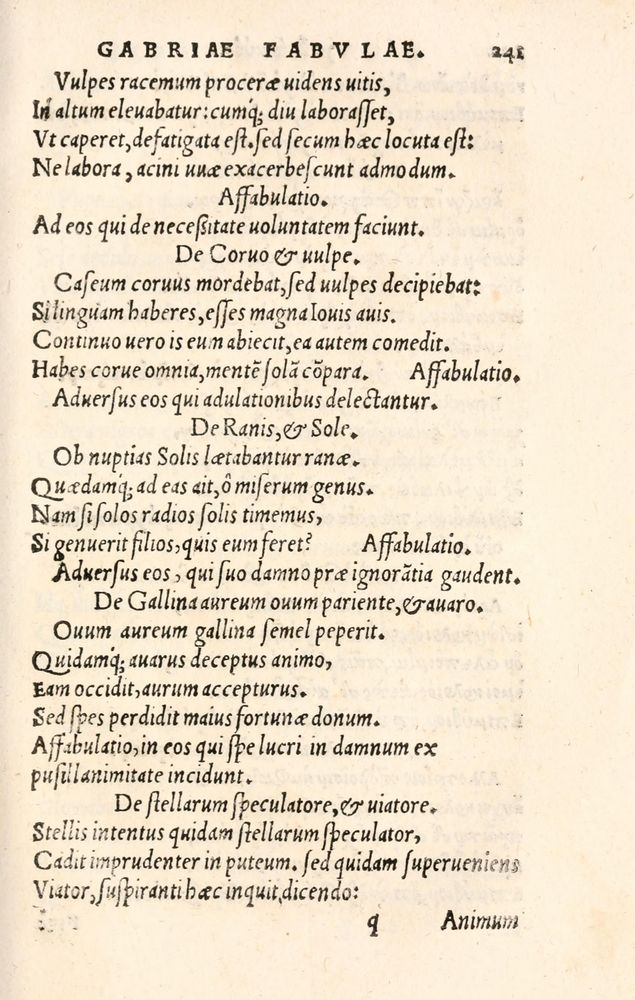 GABRIAE FABVLAE. 241
Vulpes racemum proceræ uidens uitis,
In altum eleuabatur: cumq́; diu laborasset,
Vt caperet, defatigata est. sed secum hæc locuta est:
Ne labora, acini uuæ exacerbescunt admodum.
Affabulatio.
Ad eos qui de necessitate uoluntatem faciunt.
De Coruo & uulpe.
Caseum coruus mordebat, sed uulpes decipiebat:
Si linguam haberes, esses magna Iouis auis.
Continuo uero is eum abiecit, ea autem comedit.
Habes corue omnia, mentẽ solã cõpara. Affabulatio.
Aduersus eos qui adulationibus delectantur.
De Ranis, & Sole.
Ob nuptias Solis lætabantur ranæ.
Quædamq́; ad eas ait, ô miserum genus.
Nam si solos radios solis timemus,
Si genuerit filios, quis eum feret? Affabulatio.
Aduersus eos, qui suo damno præ ignorãtia gaudent.
De Gallina aureum ouum pariente, & auaro.
Ouum aureum gallina semel peperit.
Quidamq́; auarus deceptus animo,
Eam occidit, aurum accepturus.
Sed spes perdidit maius fortunæ donum.
Affabulatio, in eos qui spe lucri in damnum ex
pusillanimitate incidunt.
De stellarum speculatore, & uiatore.
Stellis intentus quidam stellarum speculator,
Cadit imprudenter in puteum. sed quidam superueniens
Viator, suspiranti hæc inquit, dicendo:
q Animum